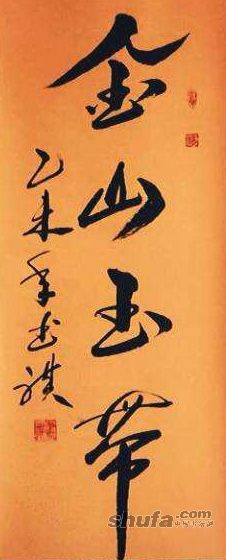 金山玉带
乙未年武
shufa.com